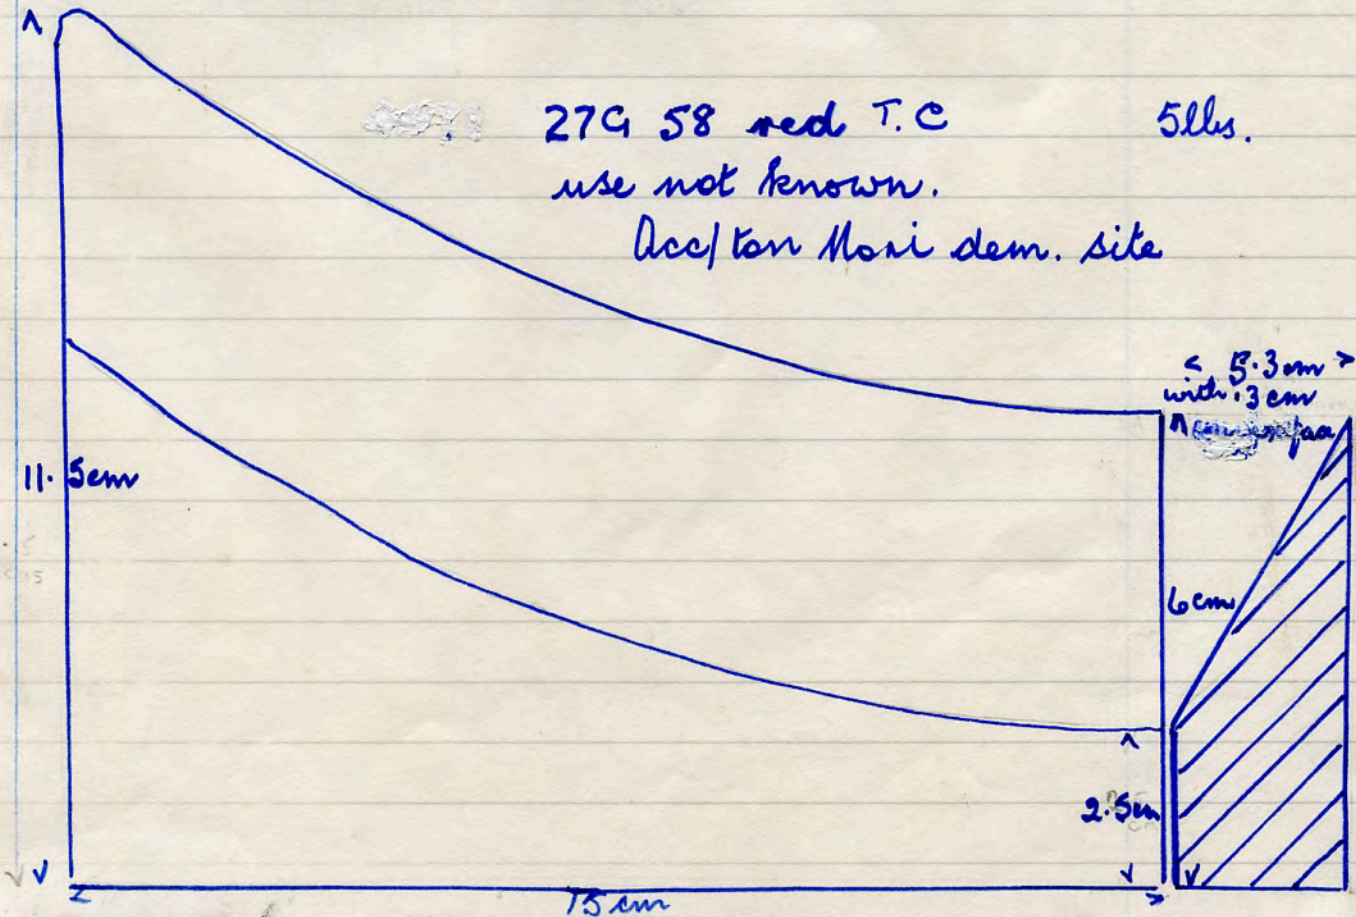 27G 58 red T.C 5lbs.
use not known.
Acc/ton Mani dem. site
< 5.3cm >
with .3cm
11.5cm
6cm
2.5cm
15cm